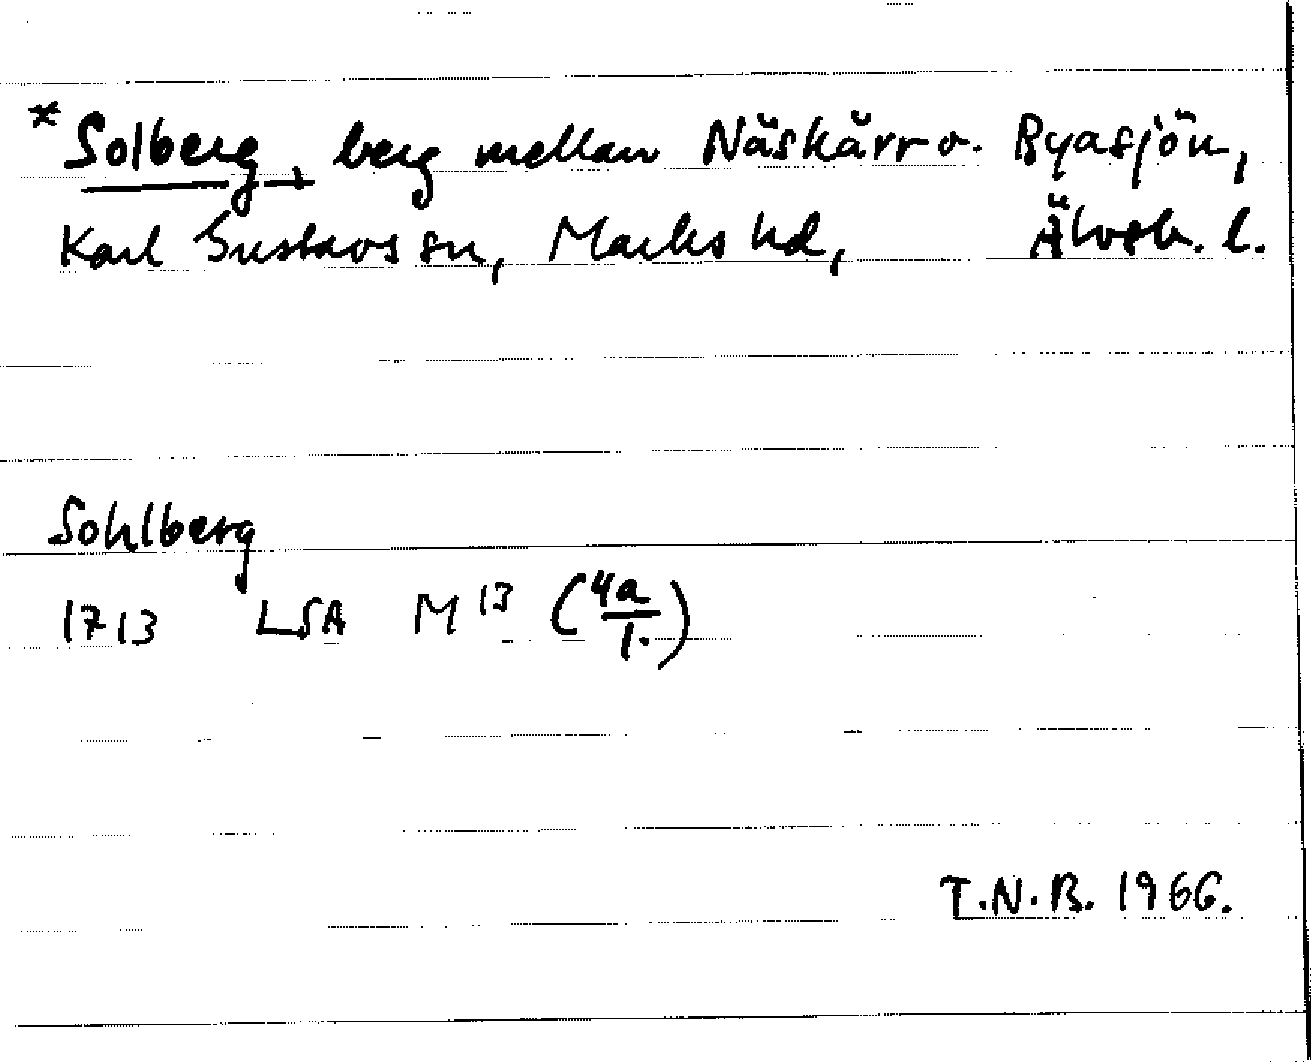 * Solberg, berg mellan Näskärr o. Ryasjön,
Karl Gustavs sn, Marks hd, Älvsb. l.
Sohlberg
1713 LSA M 13 (4a/1.)
T.N.B. 1966.